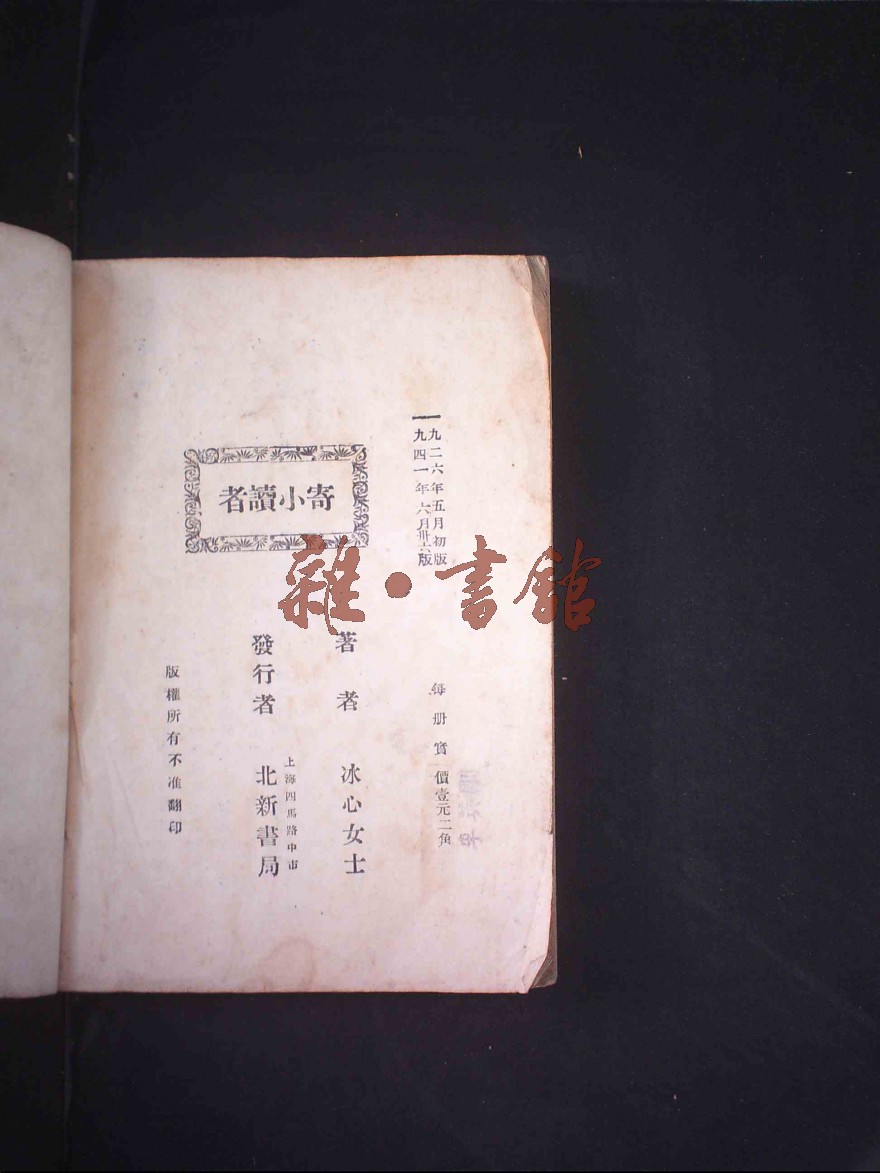 一九二六年五月初版
一九四一年六月卅六版
每册實價壹元二角
寄小讀者
著者 冰心女士
上海四馬路中市
發行者 北新書局
版權所有不准翻印
雜·書館